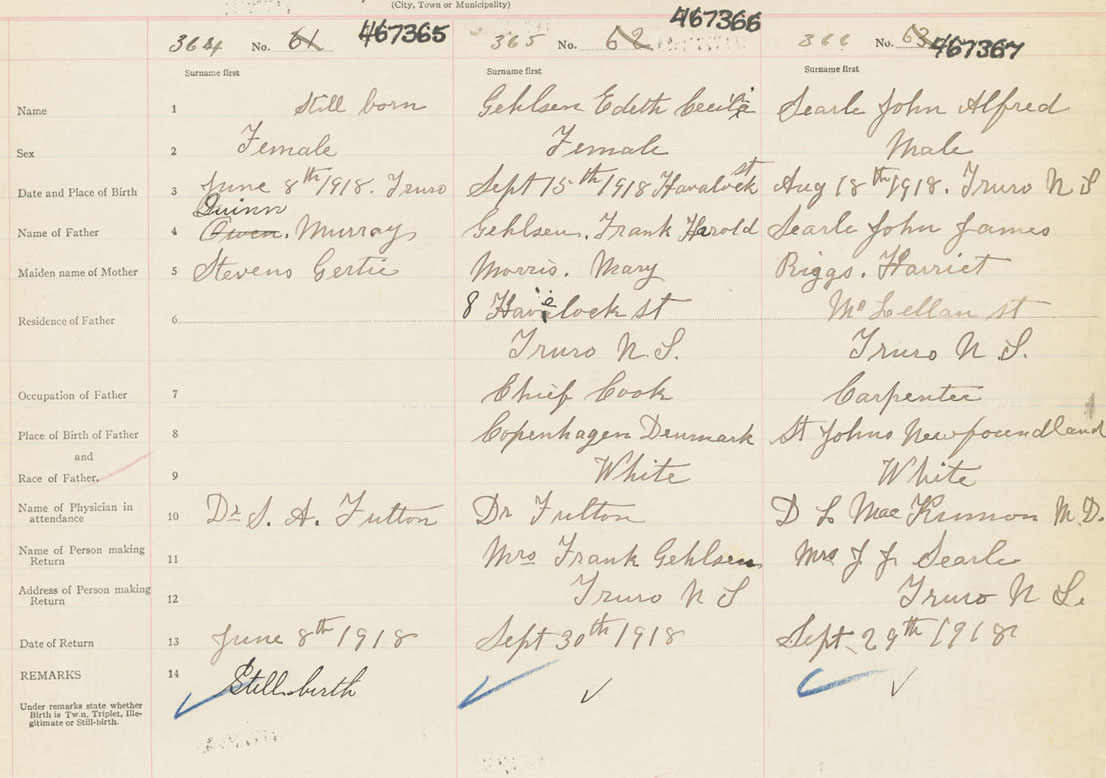 (City, Town or Municipality)
364 No. 61 467365 365 No. 62 467366 366 No. 63 467367
Surname first Surname first Surname first
Name 1 Still born Gehlsen Edeth Cecilia Searle John Alfred
Sex 2 Female Female Male
Date and Place of Birth 3 June 8th 1918. Truro Sept 15th 1918 Havalock st Aug 18th 1918. Truro N S
Quinn
Name of Father 4 Owen. Murray Gehlsen. Frank Harold Searle John James
Maiden name of Mother 5 Stevens Gertie Morris. Mary Riggs. Harriet
Residence of Father 6 8 Havelock st Mc Lellan st
Truro N.S. Truro N.S.
Occupation of Father 7 Chief Cook Carpenter
Place of Birth of Father 8 Copenhagen Denmark St Johns Newfoundland
and
Race of Father. 9 White White
Name of Physician in attendance 10 Dr S. A. Fulton Dr Fulton D L Mac M.D.
Name of Person making Return 11 Mrs Frank Gehlsen Mrs J J Searle
Address of Person making Return 12 Truro N S Truro N S.
Date of Return 13 June 8th 1918 Sept 30th 1918 Sept 29th 1918
REMARKS 14 Still-birth
Under remarks state whether
Birth is Twin, Triplet, Ille-
gitimate or Still-birth.